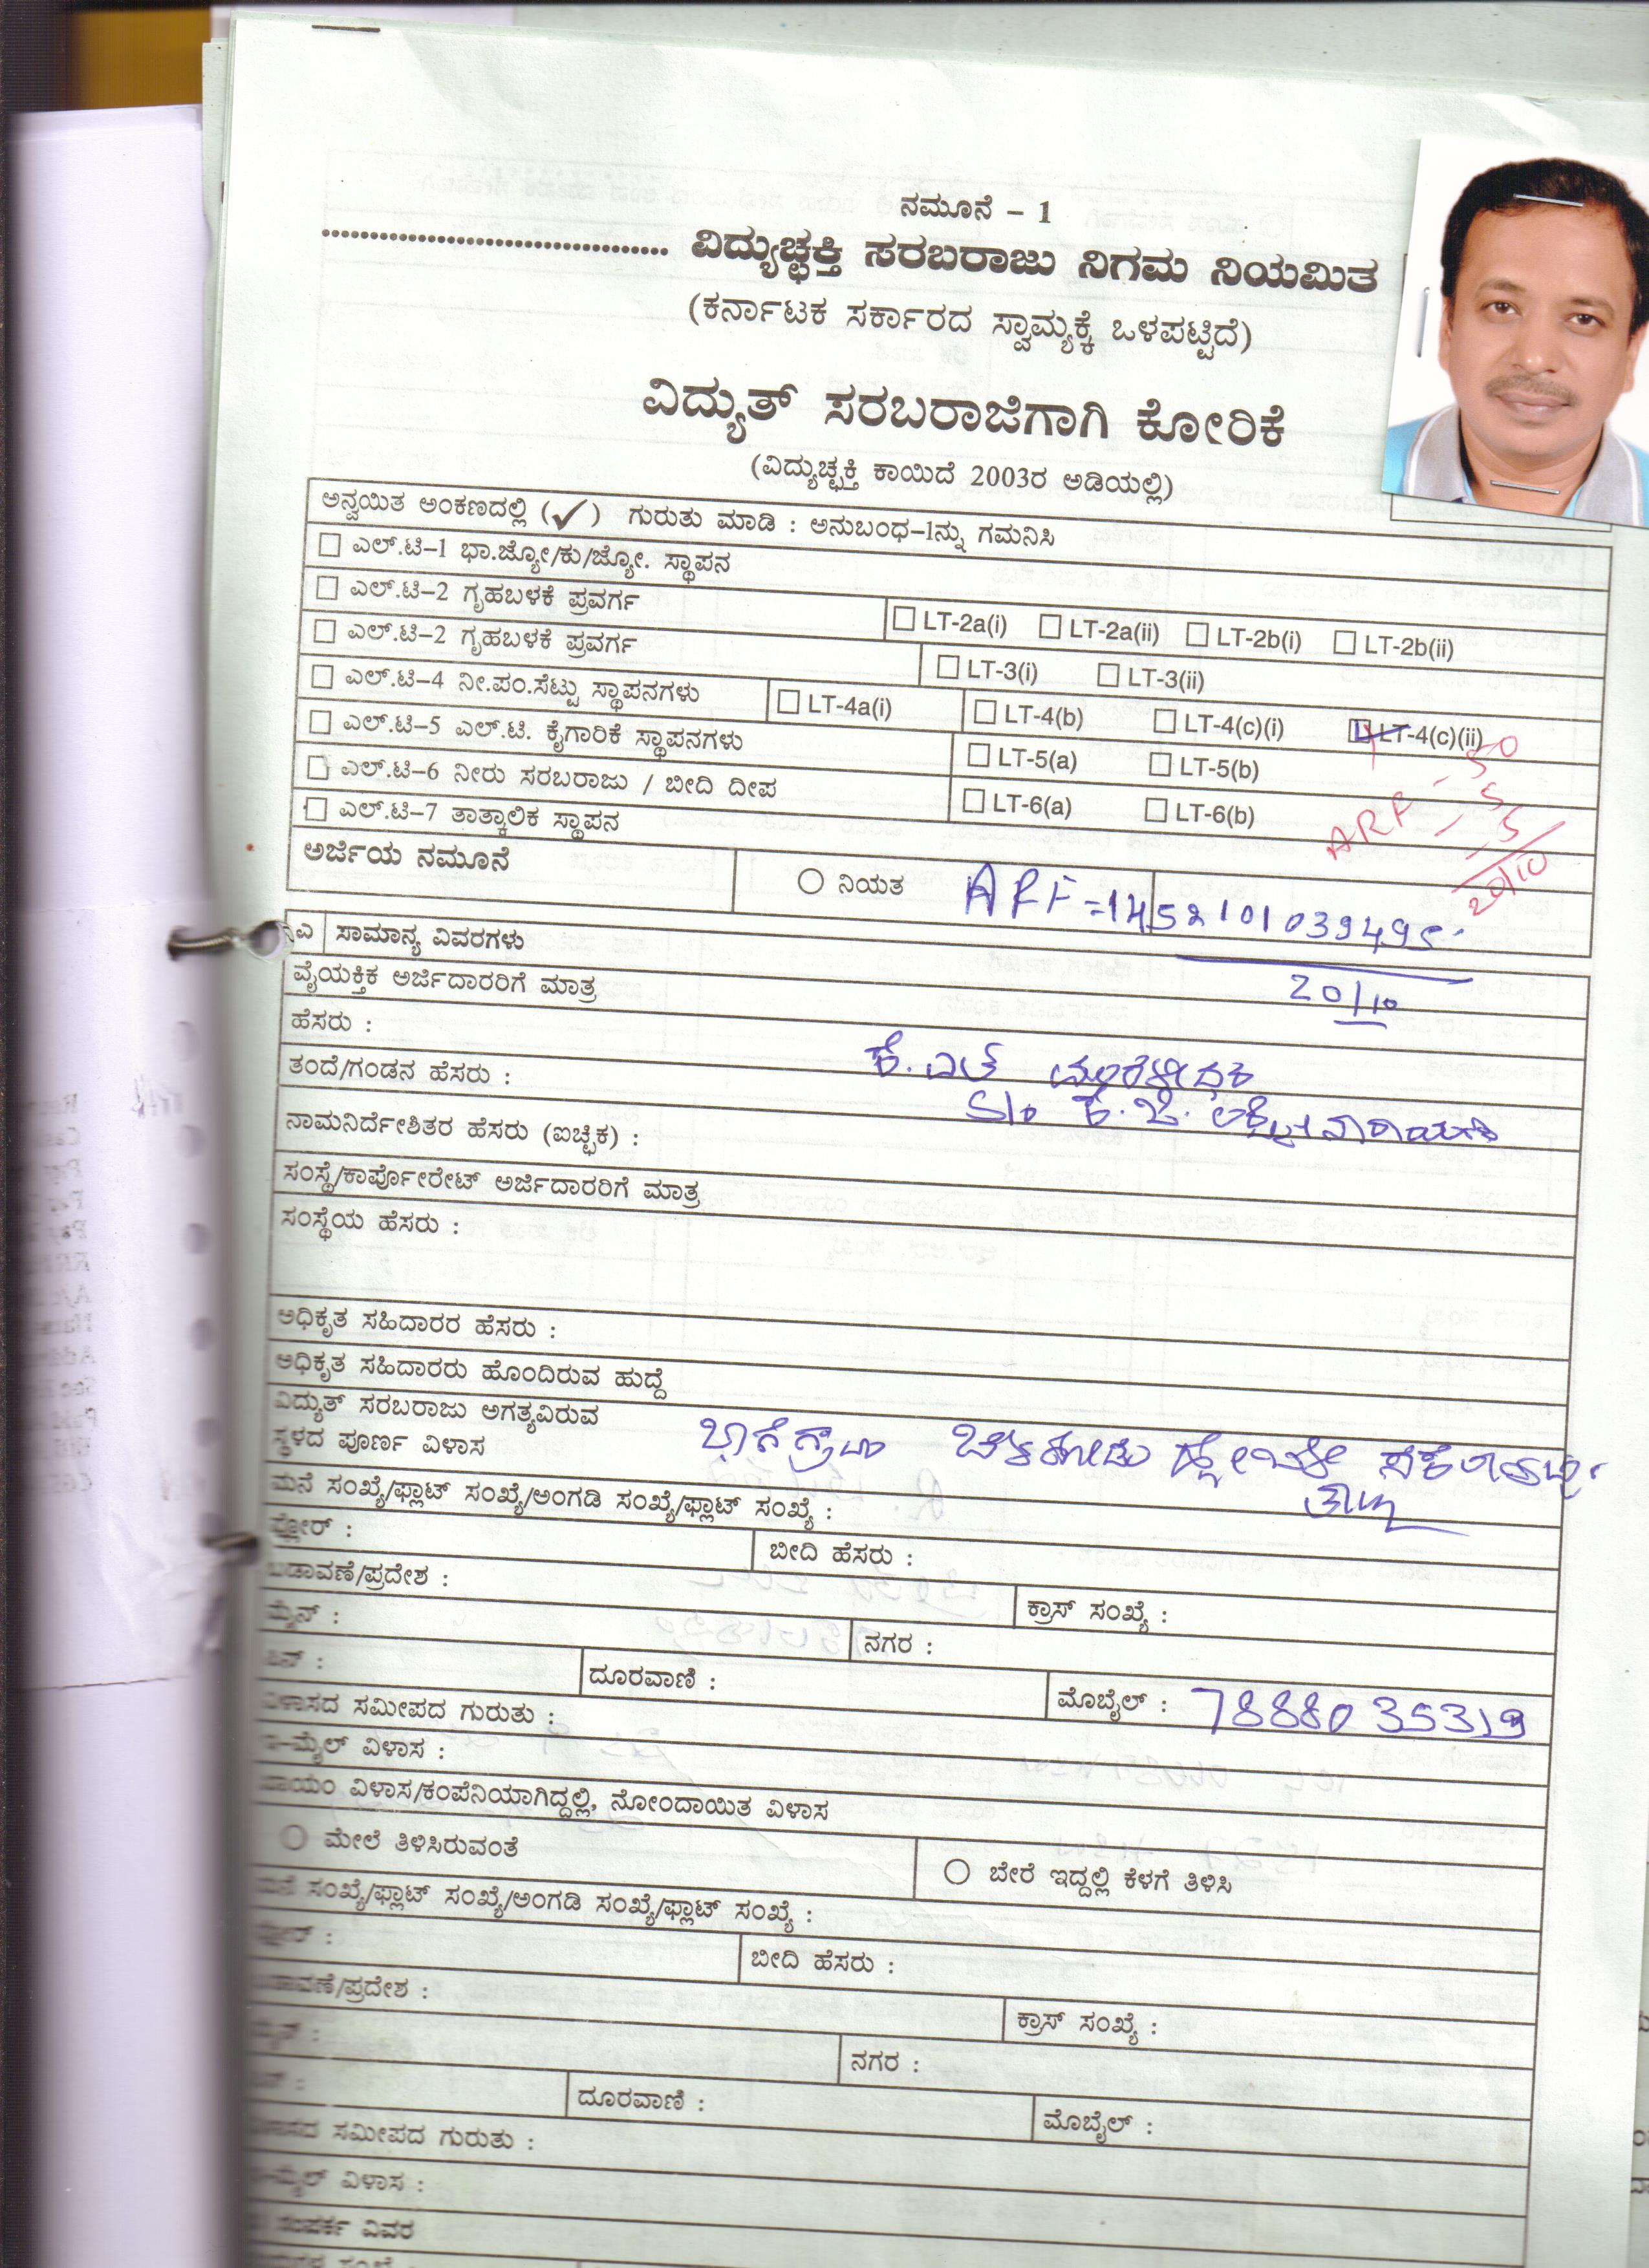 ನಮೂನೆ – 1
.................................... ವಿದ್ಯುಚ್ಛಕ್ತಿ ಸರಬರಾಜು ನಿಗಮ ನಿಯಮಿತ
(ಕರ್ನಾಟಕ ಸರ್ಕಾರದ ಸ್ವಾಮ್ಯಕ್ಕೆ ಒಳಪಟ್ಟಿದೆ)
ವಿದ್ಯುತ್ ಸರಬರಾಜಿಗಾಗಿ ಕೋರಿಕೆ
(ವಿದ್ಯುಚ್ಛಕ್ತಿ ಕಾಯಿದೆ 2003ರ ಅಡಿಯಲ್ಲಿ)
ಅನ್ವಯಿತ ಅಂಕಣದಲ್ಲಿ (✓) ಗುರುತು ಮಾಡಿ : ಅನುಬಂಧ–1ನ್ನು ಗಮನಿಸಿ
ಎಲ್.ಟಿ–1 ಭಾ.ಜ್ಯೋ/ಕು/ಜ್ಯೋ. ಸ್ಥಾಪನ
ಎಲ್.ಟಿ–2 ಗೃಹಬಳಕೆ ಪ್ರವರ್ಗ LT-2a(i) LT-2a(ii) LT-2b(i) LT-2b(ii)
ಎಲ್.ಟಿ–2 ಗೃಹಬಳಕೆ ಪ್ರವರ್ಗ LT-3(i) LT-3(ii)
ಎಲ್.ಟಿ–4 ನೀ.ಪಂ.ಸೆಟ್ಟು ಸ್ಥಾಪನಗಳು LT-4a(i) LT-4(b) LT-4(c)(i) LT-4(c)(ii)
ಎಲ್.ಟಿ–5 ಎಲ್.ಟಿ. ಕೈಗಾರಿಕೆ ಸ್ಥಾಪನಗಳು LT-5(a) LT-5(b)
ಎಲ್.ಟಿ–6 ನೀರು ಸರಬರಾಜು / ಬೀದಿ ದೀಪ LT-6(a) LT-6(b)
ಎಲ್.ಟಿ–7 ತಾತ್ಕಾಲಿಕ ಸ್ಥಾಪನ
ARF – 50
– 5
– 5
20/10
ಅರ್ಜಿಯ ನಮೂನೆ ನಿಯತ ARF =1452101039495
20/10
ಎ ಸಾಮಾನ್ಯ ವಿವರಗಳು
ವೈಯಕ್ತಿಕ ಅರ್ಜಿದಾರರಿಗೆ ಮಾತ್ರ
ಹೆಸರು : ಕೆ. ಎಲ್ ಮುರಳೀಧರ
ತಂದೆ/ಗಂಡನ ಹೆಸರು : S/o ಕೆ. ಜಿ. ಲಕ್ಷ್ಮೀನಾರಾಯಣ
ನಾಮನಿರ್ದೇಶಿತರ ಹೆಸರು (ಐಚ್ಛಿಕ) :
ಸಂಸ್ಥೆ/ಕಾರ್ಪೋರೇಟ್ ಅರ್ಜಿದಾರರಿಗೆ ಮಾತ್ರ
ಸಂಸ್ಥೆಯ ಹೆಸರು :
ಅಧಿಕೃತ ಸಹಿದಾರರ ಹೆಸರು :
ಅಧಿಕೃತ ಸಹಿದಾರರು ಹೊಂದಿರುವ ಹುದ್ದೆ
ವಿದ್ಯುತ್ ಸರಬರಾಜು ಅಗತ್ಯವಿರುವ
ಸ್ಥಳದ ಪೂರ್ಣ ವಿಳಾಸ ಬಾಗೆ ಗ್ರಾಮ ಬೆಳಗೋಡು ಹೋಬಳಿ ಸಕಲೇಶಪುರ
ತಾಲ್ಲೂಕು
ಮನೆ ಸಂಖ್ಯೆ/ಫ್ಲಾಟ್ ಸಂಖ್ಯೆ/ಅಂಗಡಿ ಸಂಖ್ಯೆ/ಫ್ಲಾಟ್ ಸಂಖ್ಯೆ :
ಫ್ಲೋರ್ : ಬೀದಿ ಹೆಸರು :
ಬಡಾವಣೆ/ಪ್ರದೇಶ : ಕ್ರಾಸ್ ಸಂಖ್ಯೆ :
ಮೈನ್ : ನಗರ :
ಪಿನ್ : ದೂರವಾಣಿ : ಮೊಬೈಲ್ : 7888035319
ವಿಳಾಸದ ಸಮೀಪದ ಗುರುತು :
ಇ–ಮೈಲ್ ವಿಳಾಸ :
ಖಾಯಂ ವಿಳಾಸ/ಕಂಪೆನಿಯಾಗಿದ್ದಲ್ಲಿ, ನೋಂದಾಯಿತ ವಿಳಾಸ
ಮೇಲೆ ತಿಳಿಸಿರುವಂತೆ ಬೇರೆ ಇದ್ದಲ್ಲಿ ಕೆಳಗೆ ತಿಳಿಸಿ
ಮನೆ ಸಂಖ್ಯೆ/ಫ್ಲಾಟ್ ಸಂಖ್ಯೆ/ಅಂಗಡಿ ಸಂಖ್ಯೆ/ಫ್ಲಾಟ್ ಸಂಖ್ಯೆ :
ಫ್ಲೋರ್ : ಬೀದಿ ಹೆಸರು :
ಬಡಾವಣೆ/ಪ್ರದೇಶ : ಕ್ರಾಸ್ ಸಂಖ್ಯೆ :
ಮೈನ್ : ನಗರ :
ದೂರವಾಣಿ : ಮೊಬೈಲ್ :
ವಿಳಾಸದ ಸಮೀಪದ ಗುರುತು :
ಇ–ಮೈಲ್ ವಿಳಾಸ :
ಸಂಪರ್ಕ ವಿವರ